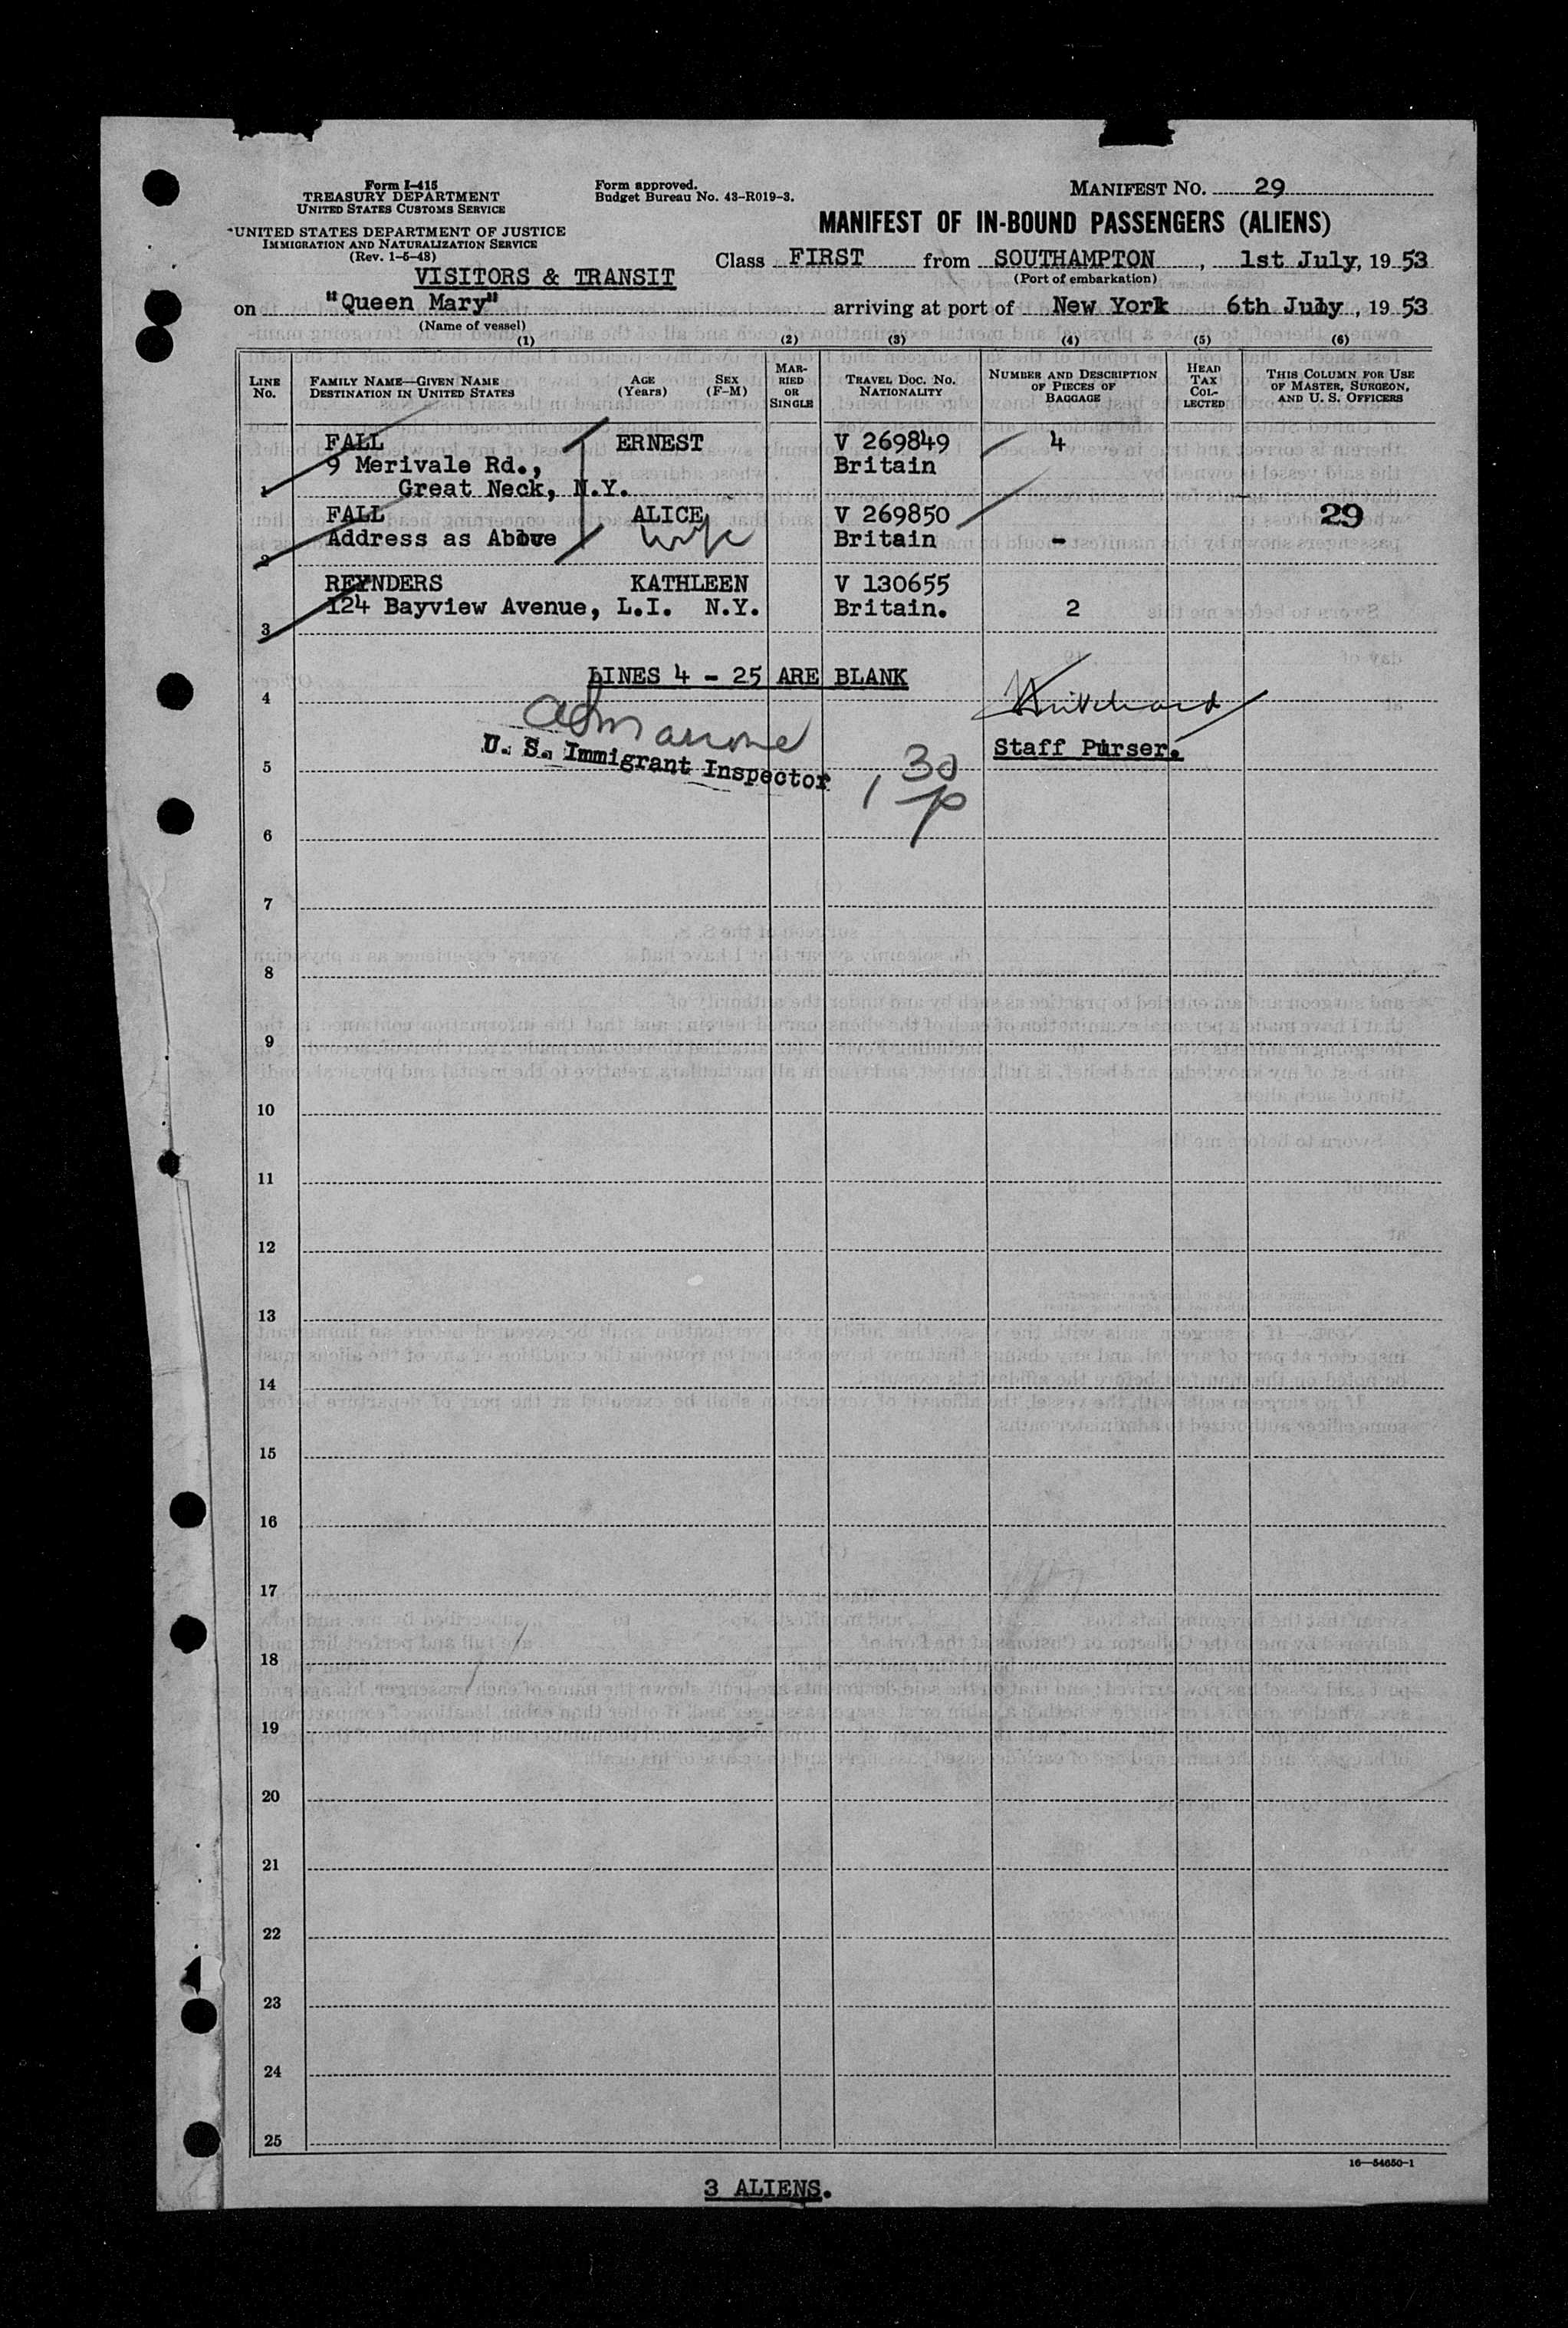 Form I-415
TREASURY DEPARTMENT
UNITED STATES CUSTOMS SERVICE
UNITED STATES DEPARTMENT OF JUSTICE
IMMIGRATION AND NATURALIZATION SERVICE
(Rev. 1-5-48)
Form approved.
Budget Bureau No. 43-R019-3.
MANIFEST No. 29
MANIFEST OF IN-BOUND PASSENGERS (ALIENS)
VISITORS & TRANSIT
Class FIRST from SOUTHAMPTON, 1st July, 1953
(Port of embarkation)
on "Queen Mary" arriving at port of New York 6th July, 1953
(Name of vessel)
(1) (2) (3) (4) (5) (6)
LINE No. FAMILY NAME—GIVEN NAME DESTINATION IN UNITED STATES AGE (Years) SEX (F-M) MARRIED OR SINGLE TRAVEL DOC. NO. NATIONALITY NUMBER AND DESCRIPTION OF PIECES OF BAGGAGE HEAD TAX COLLECTED THIS COLUMN FOR USE OF MASTER, SURGEON, AND U. S. OFFICERS
FALL ERNEST V 269849 4
9 Merivale Rd., Britain
1 Great Neck, N.Y.
FALL ALICE V 269850 29
Address as Above wife Britain -
2
REYNDERS KATHLEEN V 130655
124 Bayview Avenue, L.I. N.Y. Britain. 2
3
LINES 4 - 25 ARE BLANK
4
U. S. Immigrant Inspector
Staff Purser.
5
130
p
6
7
8
9
10
11
12
13
14
15
16
17
18
19
20
21
22
23
24
25
16—54650-1
3 ALIENS.